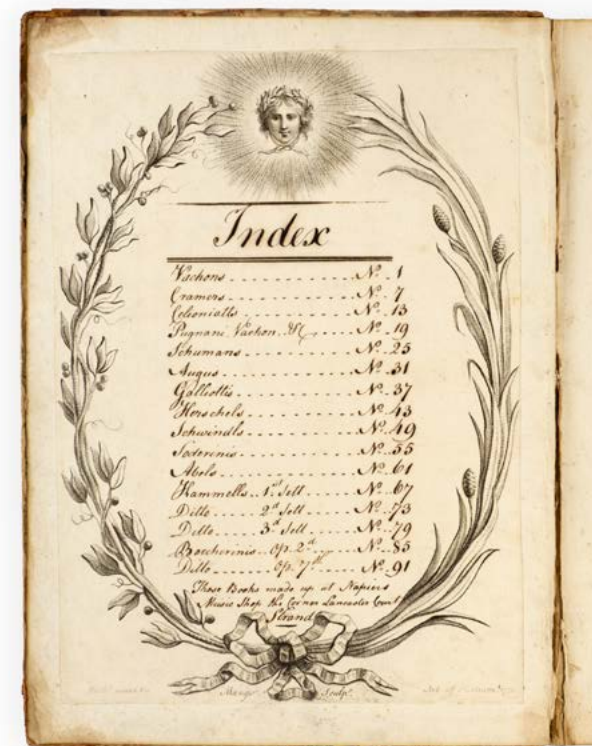 Index
Vachons . . . . . . . . . . . . . . . No. 1
Cramers . . . . . . . . . . . . . . . No. 7
Celioniatts . . . . . . . . . . . . . . . No. 13
Pugnani Vachon &c . . . . No. 19
Schumans . . . . . . . . . . . . . . . No. 25
Augus . . . . . . . . . . . . . . . No. 31
Galliottis . . . . . . . . . . . . . . . No. 37
Herschels . . . . . . . . . . . . . . . No. 43
Schwindls . . . . . . . . . . . . . . . No. 49
Soderinis . . . . . . . . . . . . . . . No. 55
Abels . . . . . . . . . . . . . . . No. 61
Kammells . . 1st Sett . . . . . No. 67
Ditto . . . . . 2d Sett . . . . . No. 73
Ditto . . . . . 3d Sett . . . . . No. 79
Boccherinis . . Op. 2d . . . . No. 85
Ditto . . . . . Op. 7th . . . . No. 91
These Books made up at Napiers
Music Shop the Corner Lancaster Court
Strand
Sculp.